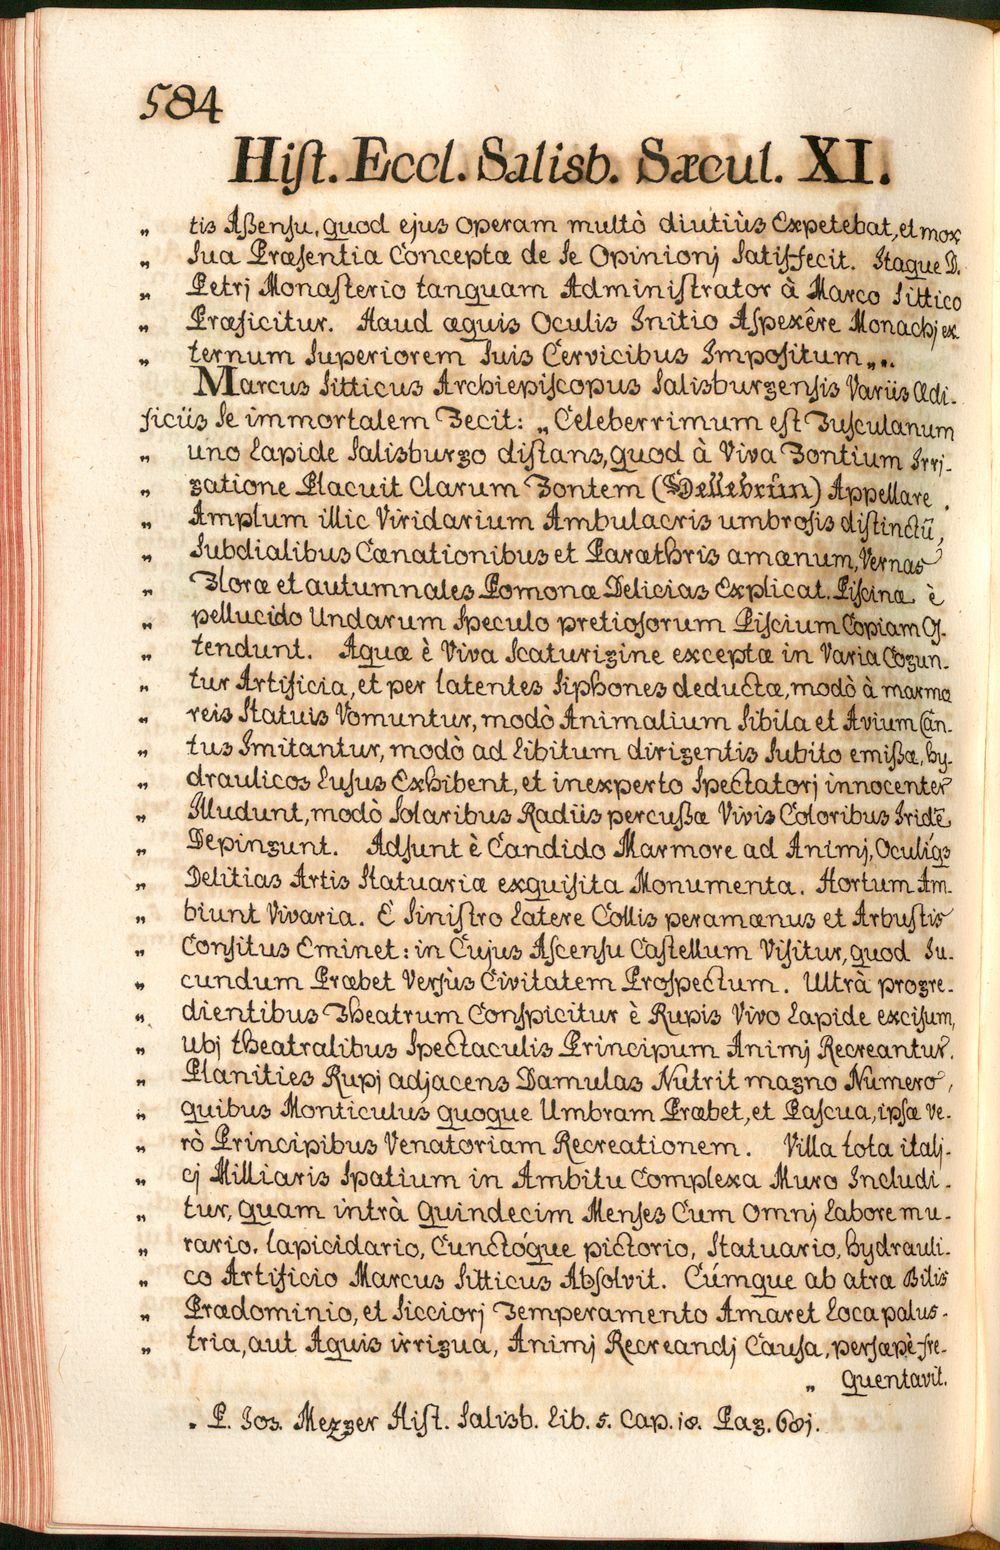 584
Hiſt. Eccl. Salisb. Sæcul. XI.
„ tis Aßenſu, quod ejus operam multò diutiùs Expetebat, et mox
„ Sua Præſentia Concepta de Se Opinionj Satiſfecit. Itaque D.
„ Petrj Monaſterio tanquam Adminiſtrator à Marco Sittico
„ Præficitur. Haud æquis Oculis Initio Aſpexêre Monachj ex-
„ ternum Superiorem Suis Cervicibus Impoſitum„.
Marcus Sitticus Archiepiſcopus Salisburgenſis Variis Ædi-
ficiis Se immortalem Fecit: „Celeberrimum eſt Tuſculanum
„ uno Lapide Salisburgo diſtans, quod à Viva Fontium Irri-
„ gatione Placuit Clarum Fontem (Hellebrùn) Appellare.
„ Amplum illic Viridarium Ambulacris umbroſis diſtinctū,
„ Subdialibus Cænationibus et Parathris amænum, Vernas
„ Floræ et autumnales Pomonæ Delicias Explicat. Piſcinæ è
„ pellucido Undarum Speculo pretioſorum Piſcium Copiam Oſ-
„ tendunt. Aquæ è Viva Scaturigine exceptæ in Varia Cogun-
„ tur Artificia, et per latentes Siphones deductæ, modò à marmo
„ reis Statuis Vomuntur, modò Animalium Sibila et Avium Can-
„ tus Imitantur, modò ad Libitum dirigentis Subito emißæ, hy-
„ draulicos Luſus Exhibent, et inexperto Spectatorj innocenter
„ Illudunt, modò Solaribus Radiis percußæ Vivis Coloribus Iridē
„ Depingunt. Adſunt è Candido Marmore ad Animj, Oculíqз
„ Delitias Artis Statuariæ exquiſita Monumenta. Hortum Am-
„ biunt Vivaria. E Siniſtro Latere Collis peramænus et Arbuſtis
„ Conſitus Eminet: in Cujus Aſcenſu Caſtellum Viſitur, quod Ju-
„ cundum Præbet Verſùs Civitatem Proſpectum. Ultrà progre-
„ dientibus Theatrum Conſpicitur è Rupis Vivo Lapide exciſum,
„ ubj theatralibus Spectaculis Principum Animj Recreantur.
„ Planities Rupj adjacens Damulas Nutrit magno Numero,
„ quibus Monticulus quoque Umbram Præbet, et Paſcua, ipſæ ve-
„ rò Principibus Venatoriam Recreationem. Villa tota italj-
„ cj Milliaris Spatium in Ambitu Complexa Muro Includi-
„ tur, quam intrà Quindecim Menſes Cum Omnj Labore mu-
„ rario, lapicidario, Cunctóque pictorio, Statuario, hydrauli-
„ co Artificio Marcus Sitticus Abſolvit. Cúmque ab atra Bilis
„ Prædominio, et Sicciorj Temperamento Amaret Loca palus-
„ tria, aut Aquis irrigua, Animj Recreandj Cauſa, perſæpè fre-
„ quentavit.
. P. Jos. Mezger Hiſt. Salisb. Lib. 5. Cap. 18. Pag. 681.